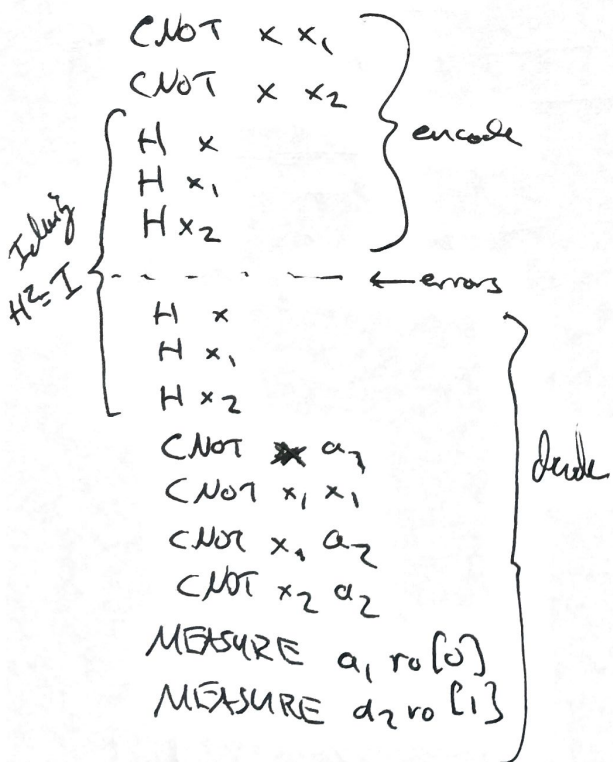 CNOT x x₁
CNOT x x₂
H x
H x₁
H x₂
encode
H²=I
← errors
H x
H x₁
H x₂
CNOT a₁
CNOT x₁ x₁
CNOT x₁ a₂
CNOT x₂ a₂
MEASURE a₁ ro[0]
MEASURE a₂ ro[1]